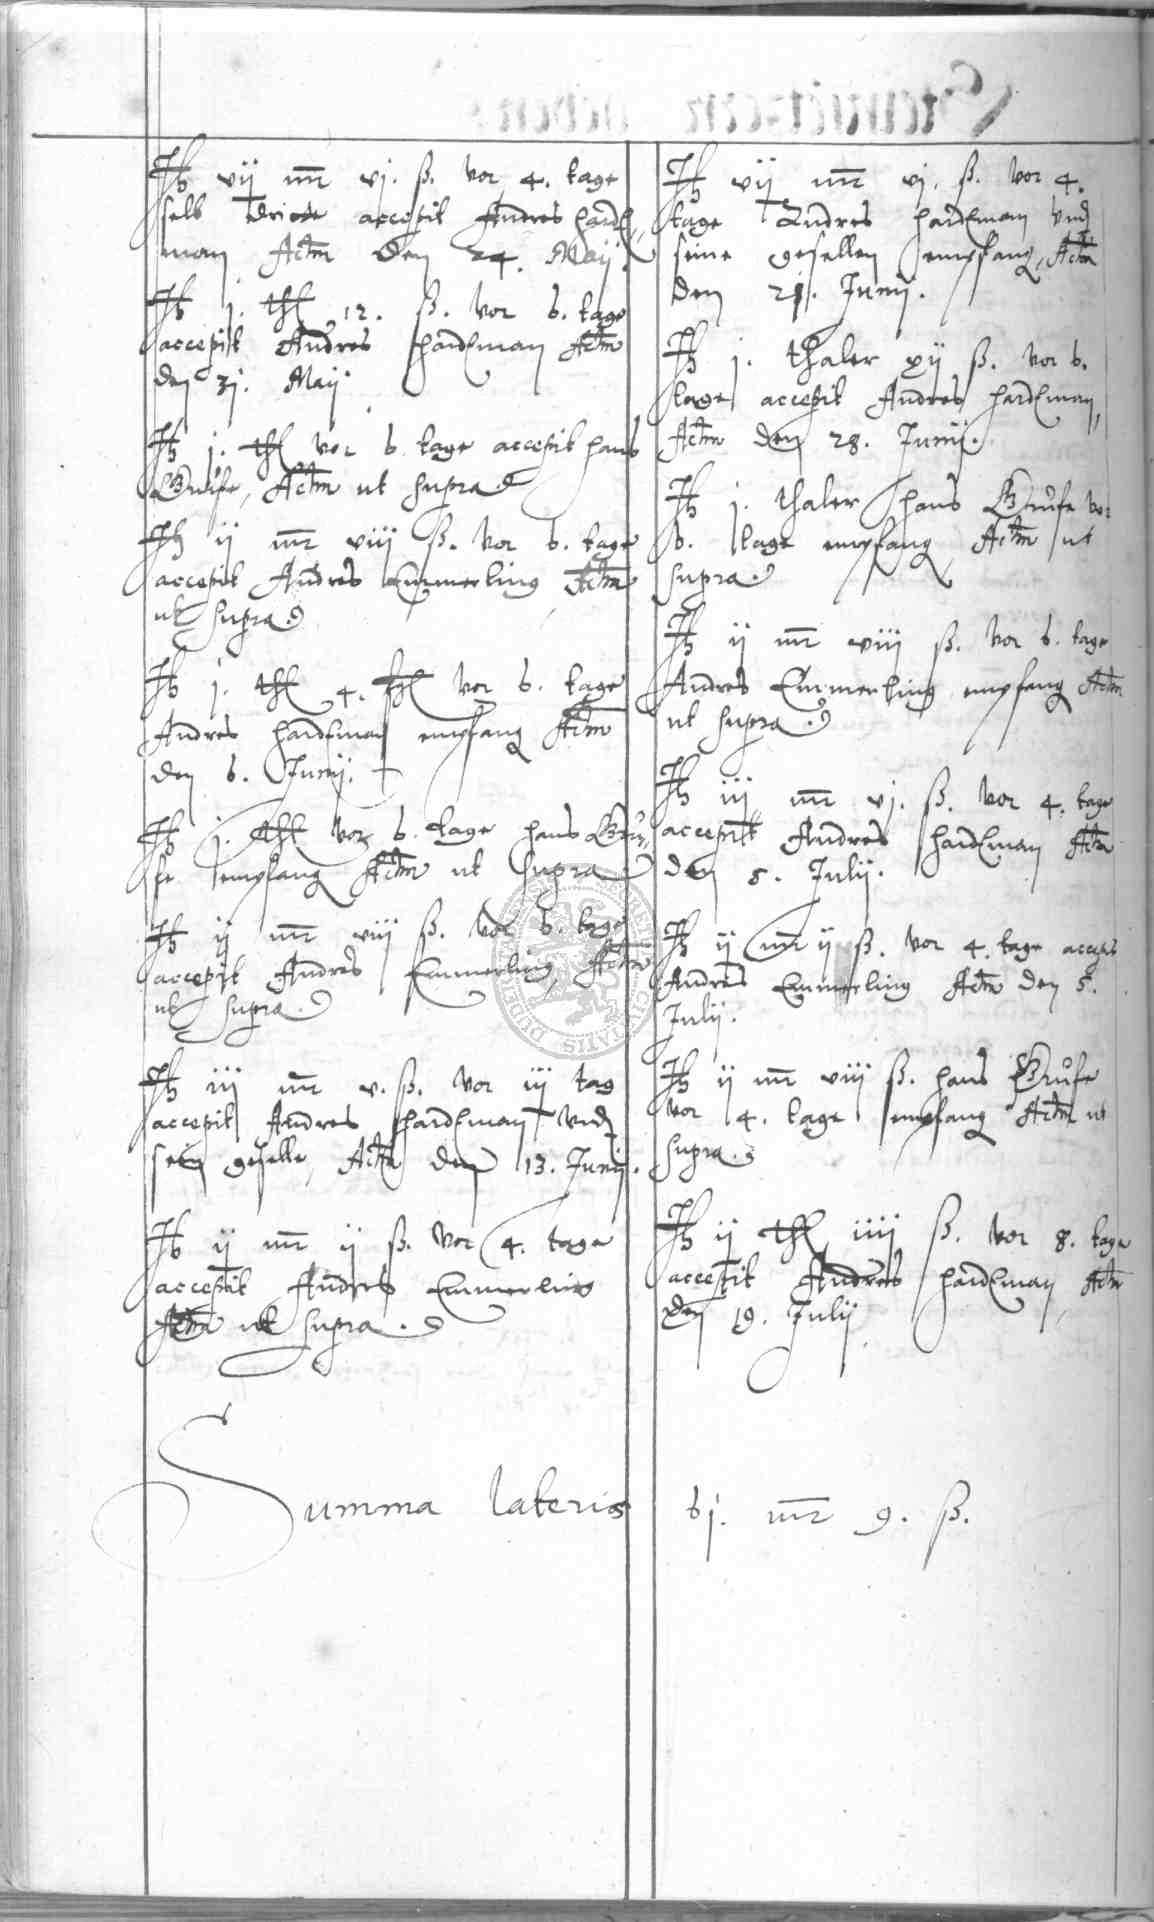 It vij mr vj. ß. vor 4. tage
selb dridde accepit Andres Hardt„
man Actm den 24. Maij.
It j. thl 12. ß. vor 6. tage
accepit Andres Hardtman Actm
den 31. Maij
It j. thl vor 6 tage accepit Hans
Gruse, Actm ut supra
It ij mr viij ß. vor 6. tage
accepit Andres Emmerling Actm
ut supra
It j. thl 4. vor 6. tage
Andres Hardtman empfang Actm
den 6. Junij.
It j. thl vor 6. tage Hans Gru„
se empfang Actm ut supra
It ij mr viij ß. vor 6. tage
accepit Andres Emmerling, Actm
ut supra.
It iij mr v. ß. vor iij tag
accepit Andres Hardtman und
sein geselle, Actm den 13. Junij.
It ij mr ij ß. vor 4. tage
accepit Andres Emmerling
Actm ut supra.
It vij mr vj. ß. vor 4.
tage Andres Hardtman und
seine gesellen empfang, Actm
den 21. Junij.
It j. thaler xij ß. vor 6.
tage accepit Andres Hardtman,
Actm den 28. Junij.
It j. thaler Hans Gruse vor
6. tage empfang Actm ut
supra.
It ij mr viij ß. vor 6. tage
Andres Emmerling empfang Actm
ut supra.
It iij mr vj. ß. vor 4. tage
accepit Andres Hardtman Actm
den 5. Julij.
It ij mr ij ß. vor 4. tage
Andres Emmerling Actm den 5.
Julij.
It ij mr viij ß. Hans Gruse
vor 4. tage empfang Actm ut
supra.
It ij thl iiij ß. vor 8. tage
accepit Andres Hardtman, Actm
den 19. Julij
Summa lateris 61. mr 9. ß.